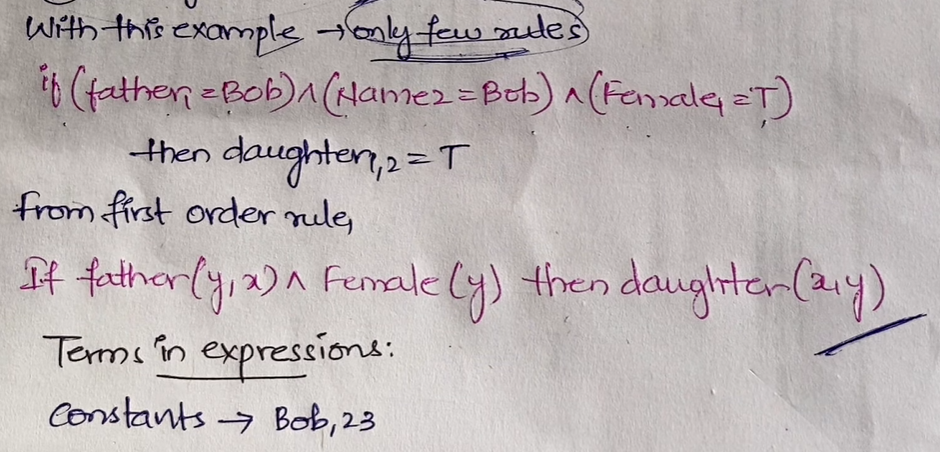 With this example → only few rules
if (father₁ = Bob) ∧ (Name2 = Bob) ∧ (Female₁ = T)
then daughter₁,₂ = T
from first order rule,
If father(y,x) ∧ Female(y) then daughter(x,y)
Terms in expressions:
Constants → Bob, 23